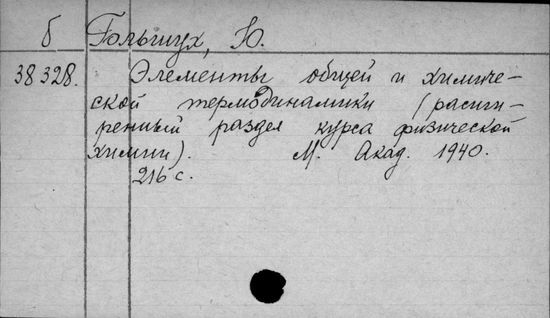 б Гольшух, Ю.
38 328. Элементы общей и химиче-
ской термодинамики (расши-
ренный раздел курса физической
химии). М. Акад. 1940.
216 с.